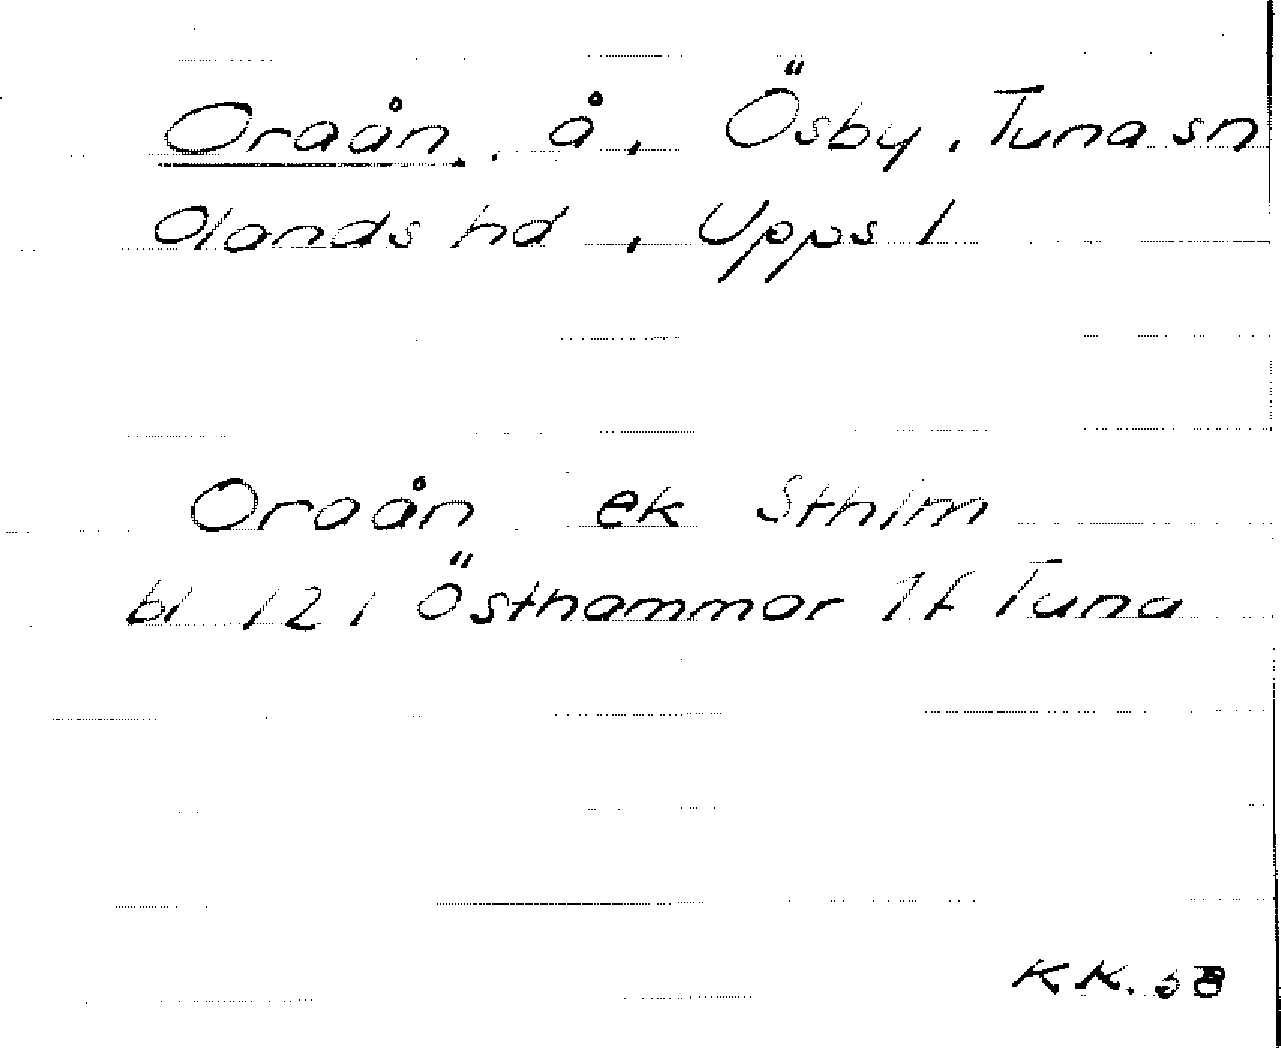 Oraån, å, Ösby, Tuna sn
Olands hd, Upps l
Oraån ek Sthlm
bl 121 Östhammar 1f Tuna
K.K. 58